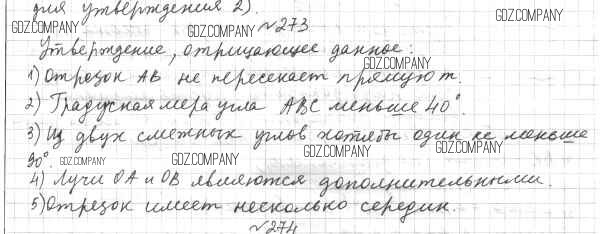 для утверждения 2).
GDZ.COMPANY
GDZ.COMPANY
№273
GDZ.COMPANY
Утверждение, отрицающее данное:
GDZ.COMPANY
1) Отрезок AB не пересекает прямую m.
2) Градусная мера угла ABC меньше 40°.
3) Из двух смежных углов хотябы один не меньше
90°.
GDZ.COMPANY
GDZ.COMPANY
GDZ.COMPANY
GDZ.COMPANY
4) Лучи OA и OB являются дополнительными.
5) Отрезок имеет несколько середин.
№274